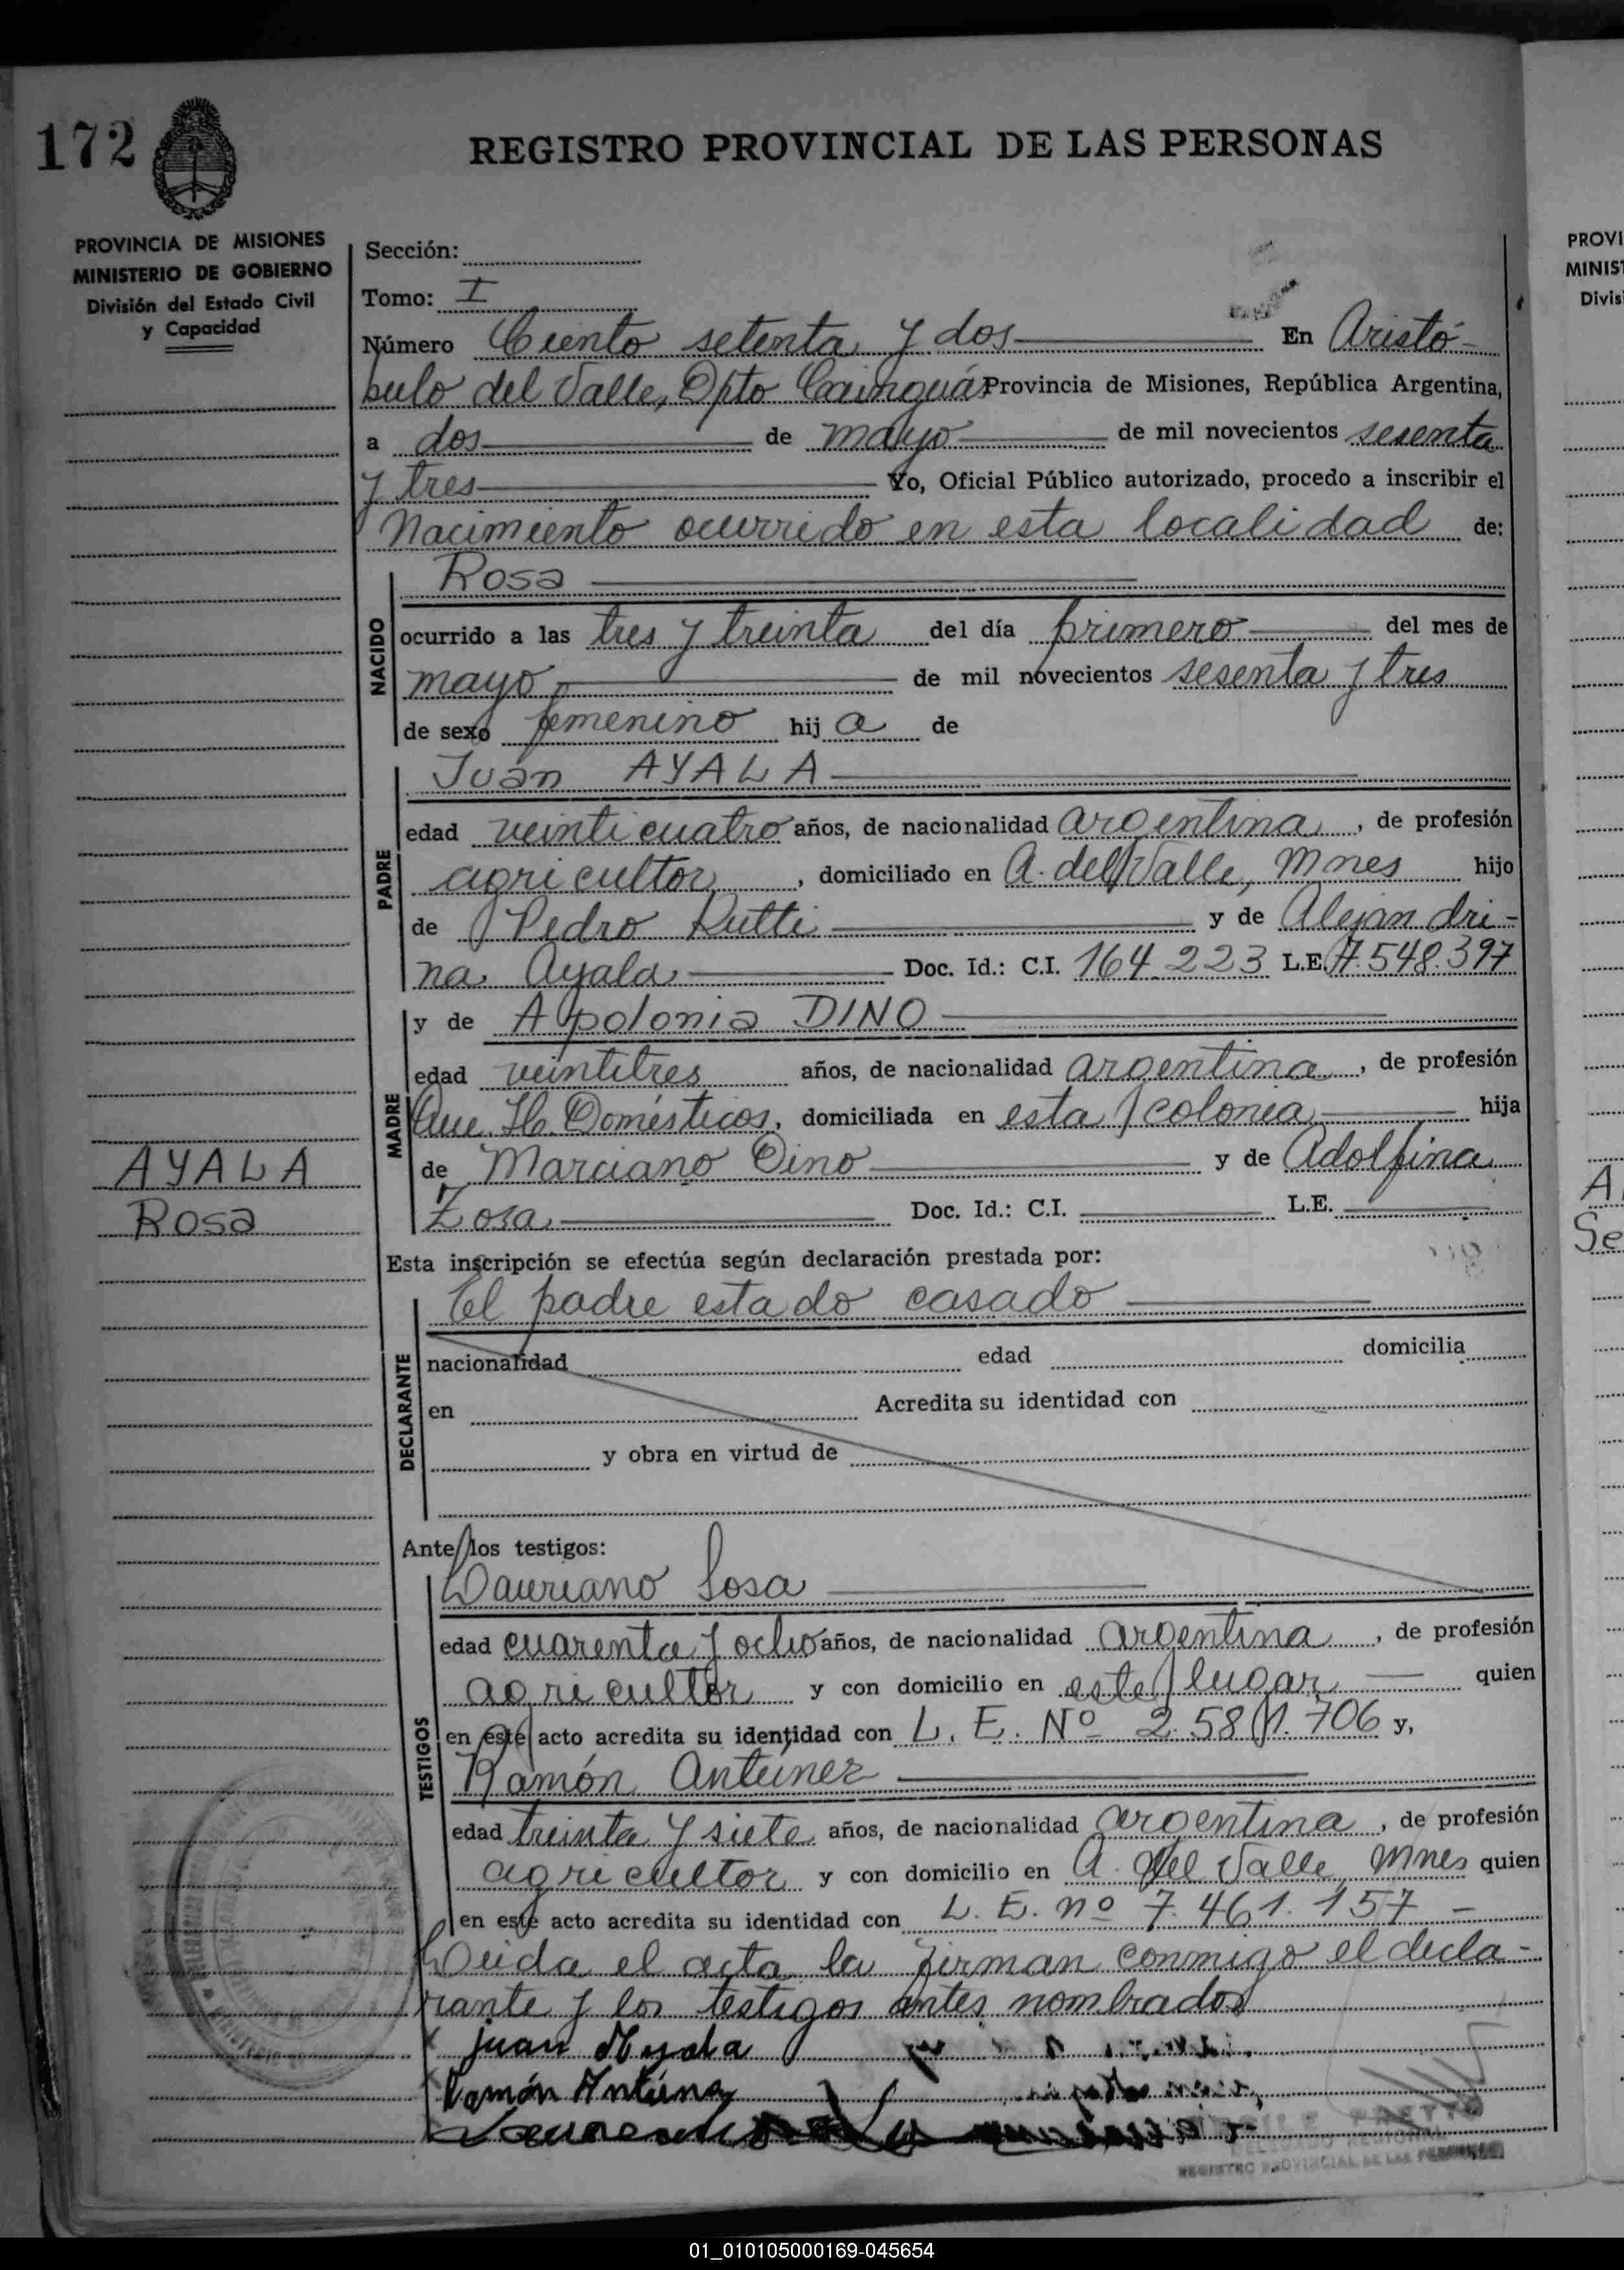 172
REGISTRO PROVINCIAL DE LAS PERSONAS
PROVINCIA DE MISIONES
MINISTERIO DE GOBIERNO
División del Estado Civil
y Capacidad
Sección:
Tomo: I
Número Ciento setenta y dos En Aristó-
bulo del Valle, Dpto Cainguás Provincia de Misiones, República Argentina,
a dos de mayo de mil novecientos sesenta
y tres Yo, Oficial Público autorizado, procedo a inscribir el
Nacimiento ocurrido en esta localidad de:
NACIDO
Rosa
ocurrido a las tres y treinta del día primero del mes de
mayo de mil novecientos sesenta y tres
de sexo femenino hij a de
PADRE
Juan AYALA
edad veinticuatro años, de nacionalidad argentina, de profesión
agricultor, domiciliado en A. del Valle, Mnes hijo
de Pedro Rutti y de Alejandri-
na Ayala Doc. Id.: C.I. 164.223 L.E. 7.548.397
MADRE
y de Apolonia DINO
edad veintitres años, de nacionalidad argentina, de profesión
Que. H. Domésticos, domiciliada en esta colonia hija
de Marciano Dino y de Adolfina
Zosa Doc. Id.: C.I. L.E.
AYALA
Rosa
Esta inscripción se efectúa según declaración prestada por:
DECLARANTE
El padre estado casado
nacionalidad edad domicilia
en Acredita su identidad con
y obra en virtud de
Ante los testigos:
TESTIGOS
Lauriano Sosa
edad cuarenta y ocho años, de nacionalidad argentina, de profesión
agricultor y con domicilio en este lugar quien
en este acto acredita su identidad con L. E. Nº 2.581.706 y,
Ramón Antúnez
edad treinta y siete años, de nacionalidad argentina, de profesión
agricultor y con domicilio en A. del Valle, Mnes quien
en este acto acredita su identidad con L. E. nº 7.461.157 -
Leida el acta la firman conmigo el decla-
rante y los testigos antes nombrados
Juan Ayala
Ramón Antúnez
PRETTO
DELEGADO REGIONAL
REGISTRO PROVINCIAL DE LAS PERSONAS
PROVI
MINIST
Divis
A
Se
01_010105000169-045654